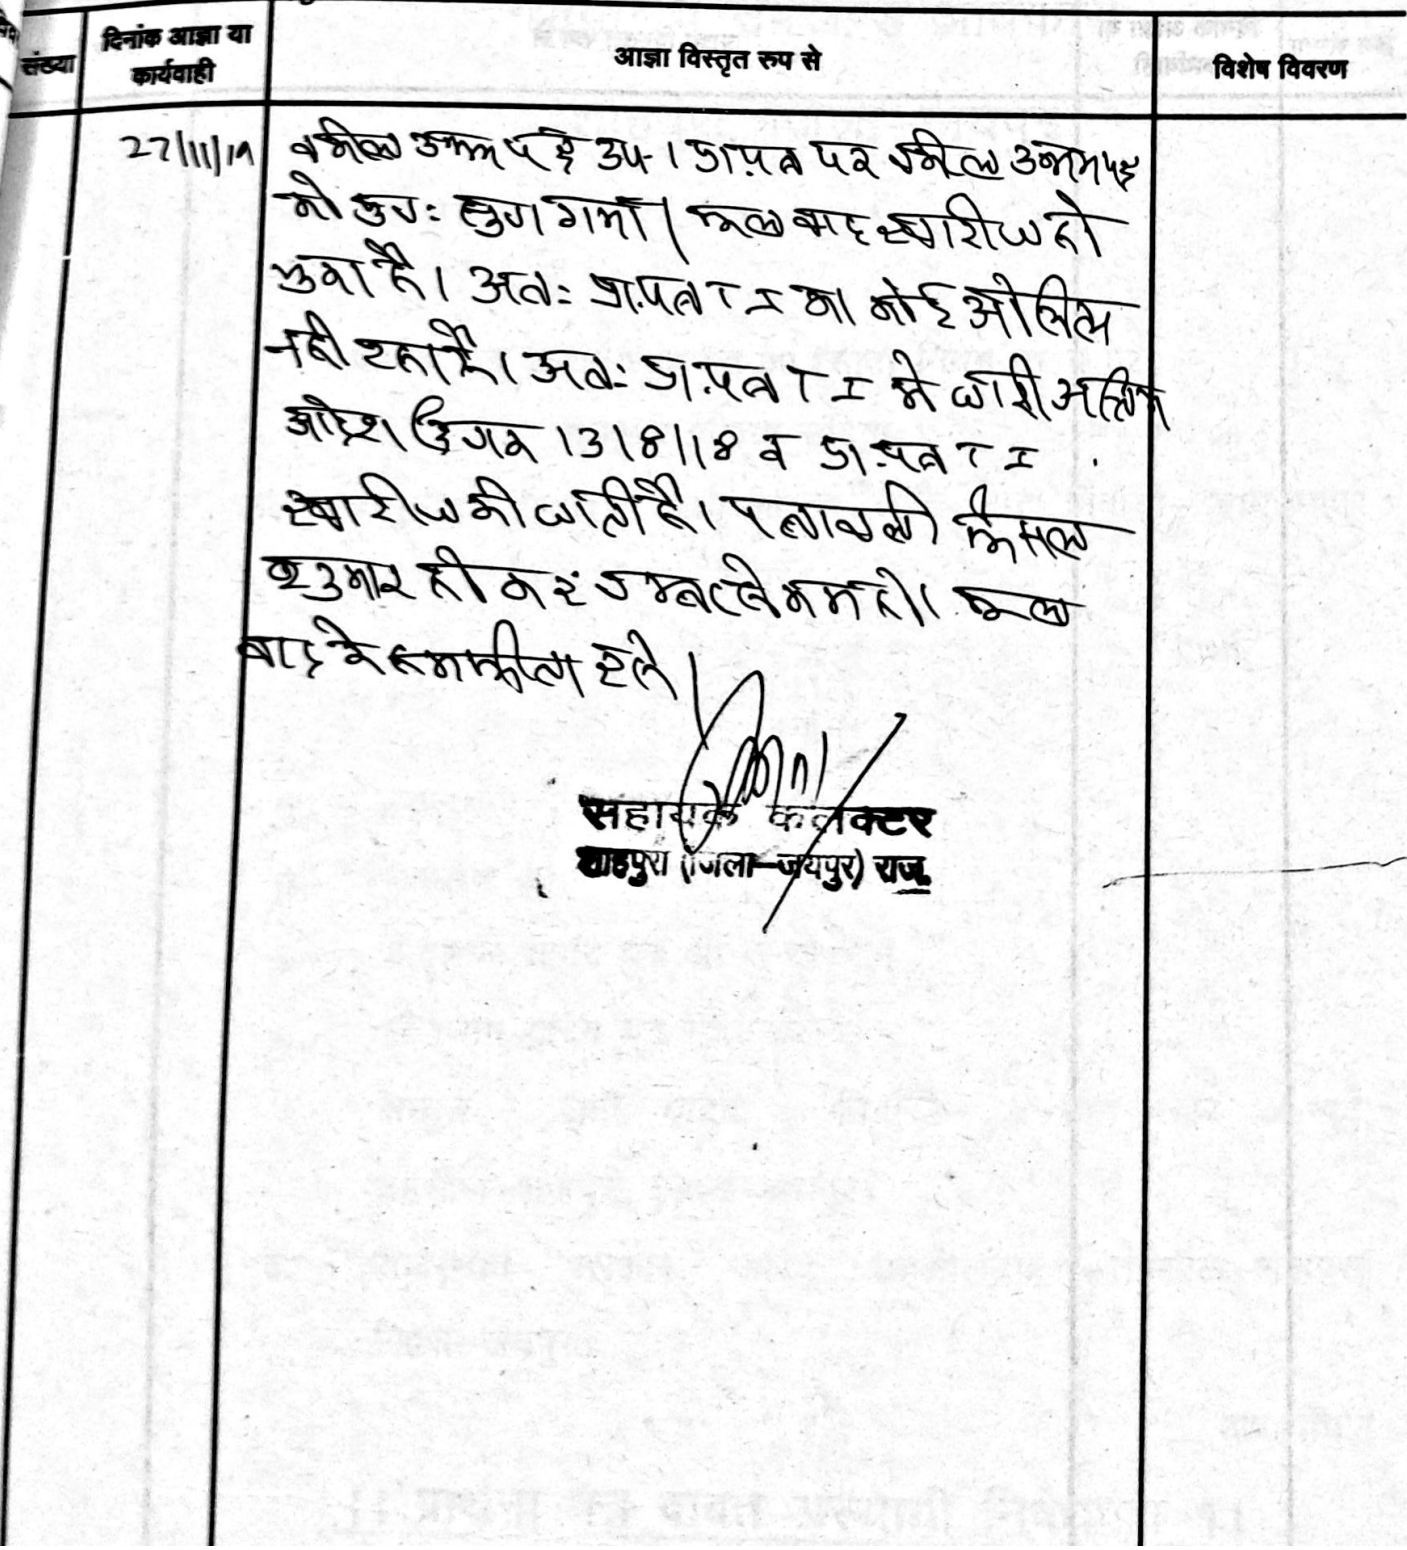 संख्या
दिनांक आज्ञा या
कार्यवाही
आज्ञा विस्तृत रुप से
विशेष विवरण
27/11/19
वकील उभय पक्ष उप. । प्रा.पत्र पर वकील उभय पक्ष
को पुनः सुना गया। मूल वाद खारीज हो
चुका है। अतः प्रा.पत्र T I का कोई औचित्य
नही रहा है। अतः प्रा.पत्र T I मे जारी अन्तरिम
आदेश दिनांक 13/8/18 व प्रा.पत्र T I
खारीज की जाती है। पत्रावली फैसल
शुमार होकर नम्बर से कम हो। मूल
वाद के हमफीता रहे।
सहायक कलक्टर
शाहपुरा (जिला-जयपुर) राज.